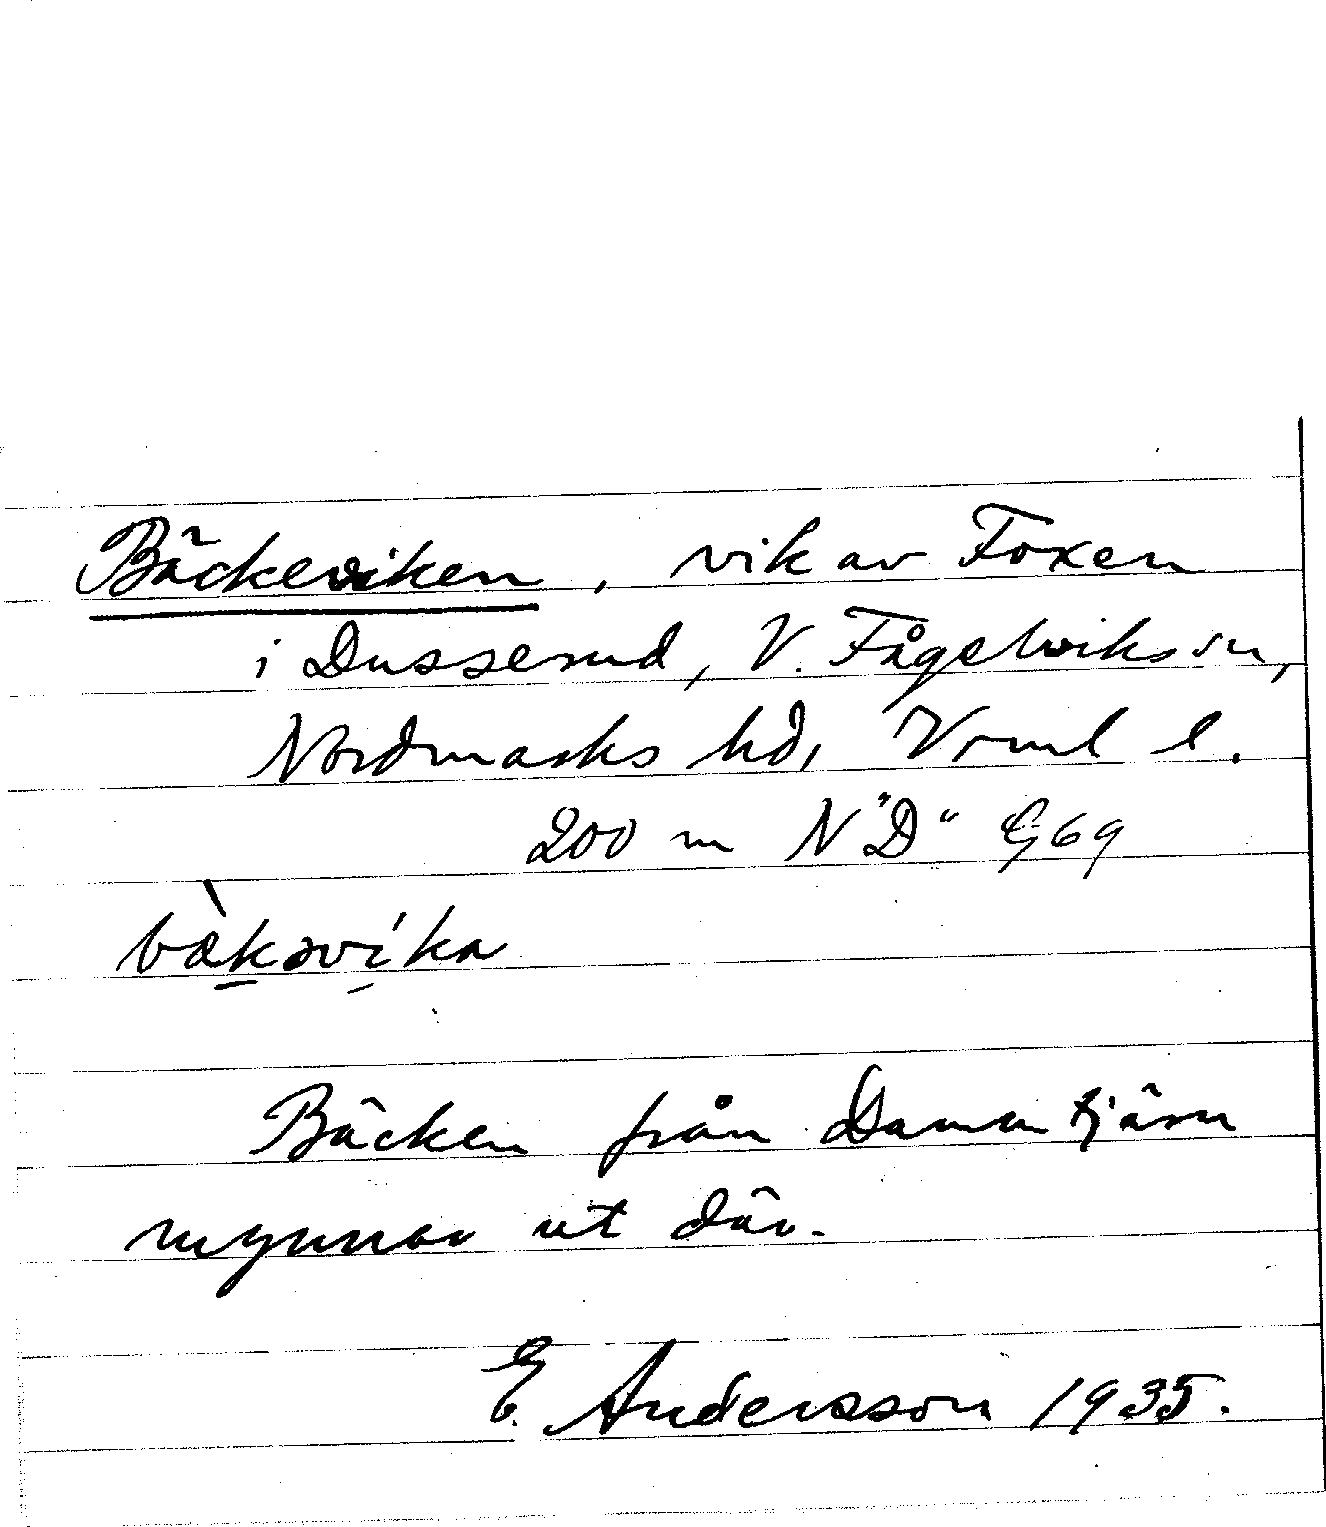 Bäckeviken, vik av Foxen
i Dusserud, V. Fågelviks sn,
Nordmarks hd, Vrml l.
200 m N "D" G69
bækəvika
Bäcken från Damm tjärn
mynnar ut där.
E. Andersson 1935.